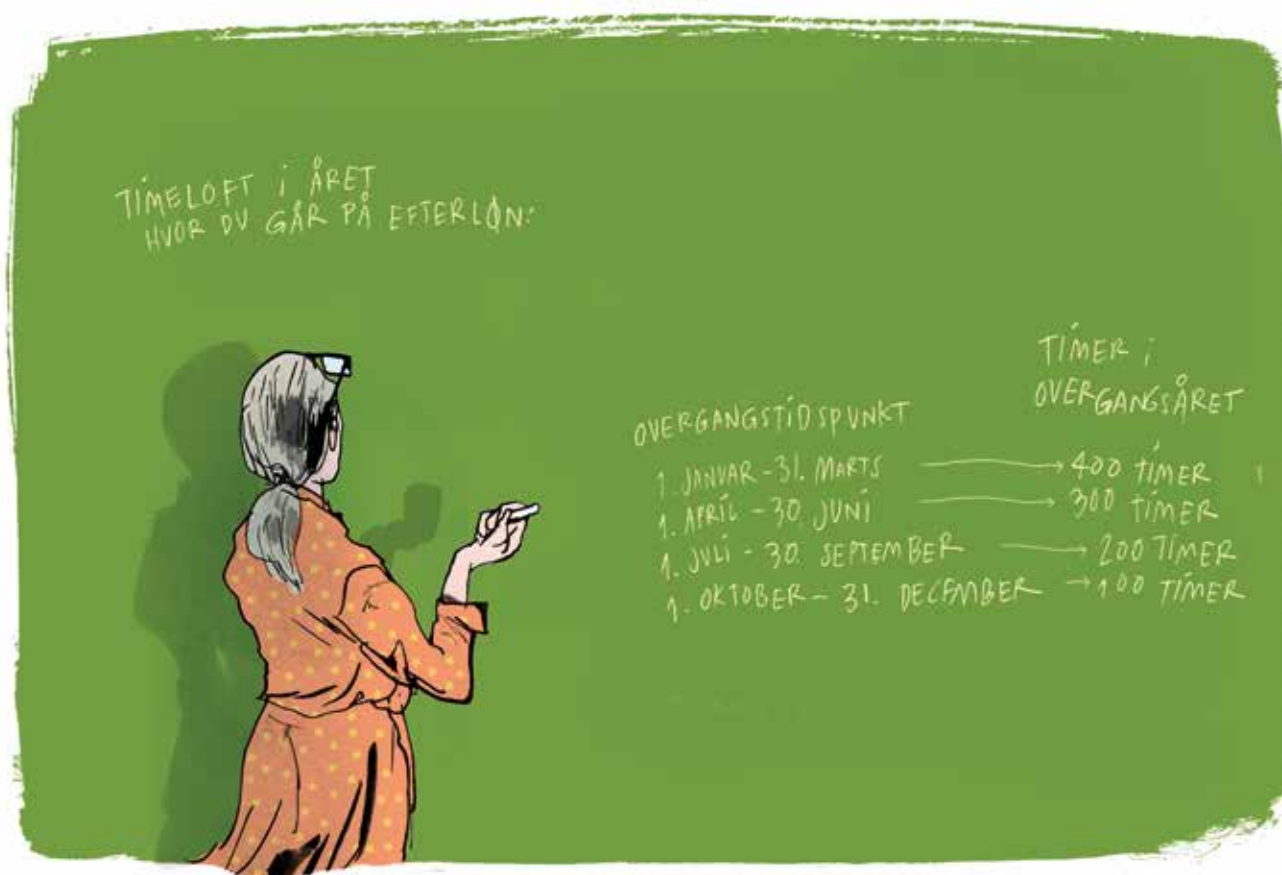 TIMELOFT I ÅRET
HVOR DU GÅR PÅ EFTERLØN:
TIMER I
OVERGANGSÅRET
OVERGANGSTIDSPUNKT
1. JANUAR - 31. MARTS → 400 TIMER
1. APRIL - 30. JUNI → 300 TIMER
1. JULI - 30. SEPTEMBER → 200 TIMER
1. OKTOBER - 31. DECEMBER → 100 TIMER